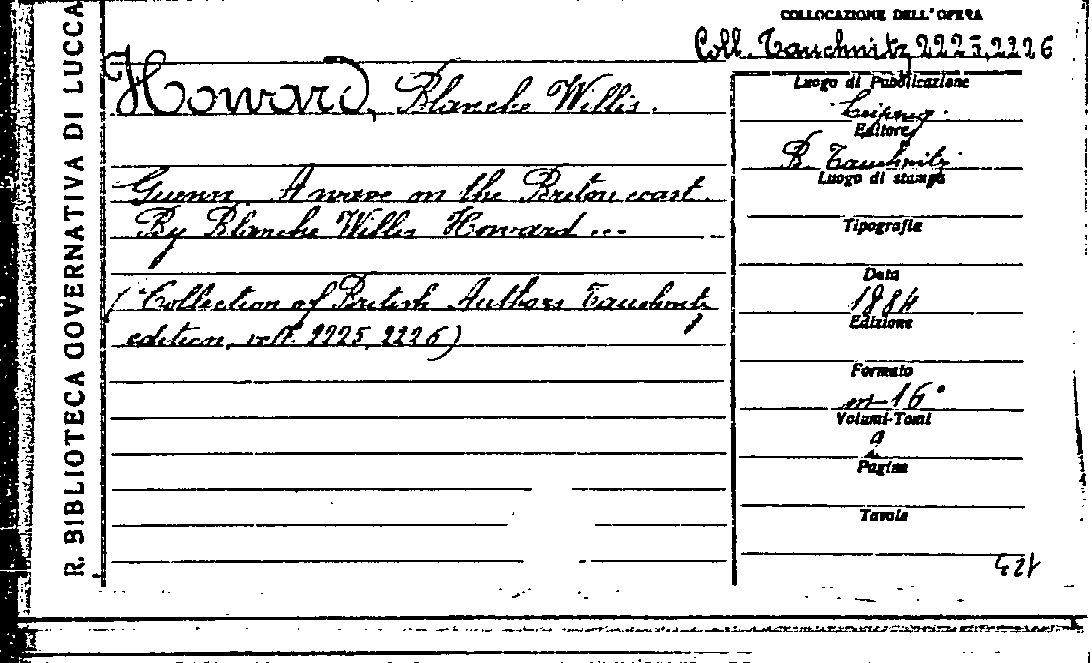 R. BIBLIOTECA GOVERNATIVA DI LUCCA
COLLOCAZIONE DELL'OPERA
Coll. Tauchnitz 2225, 2226
Howard, Blanche Willis.
Guenn. A wave on the Breton coast.
By Blanche Willis Howard ...
(Collection of British Authors Tauchnitz
edition, voll. 2225, 2226)
Luogo di Pubblicazione
Leipzig.
Editore
B. Tauchnitz
Luogo di stampa
Tipografia
Data
1884
Edizione
Formato
in-16°
Volumi-Tomi
2
Pagine
Tavole